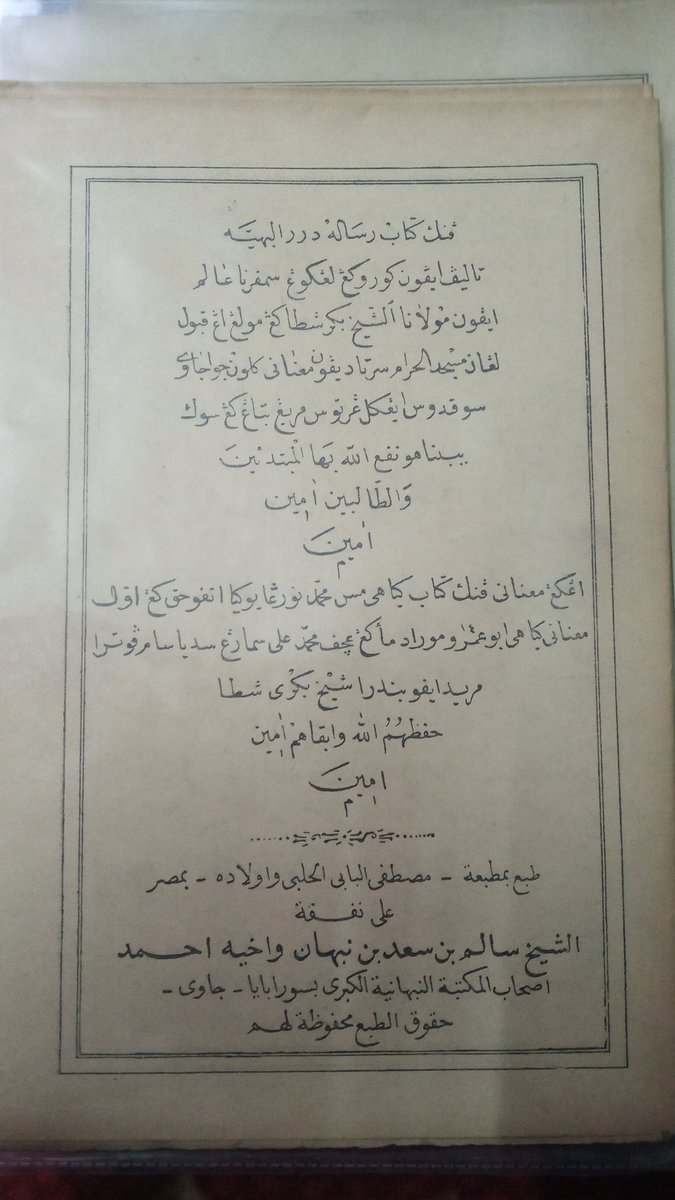 ڤنيك كتاب رسالة درر البهيّه
تاليڤ ايڤون كورو كڠ لڠكوڠ سمڤرنا عالم
ايڤون مولانا الشّيخ بكر شطا كڠ مولڠ اڠ
مسجد الحرام سرتا ديڤون معناني كلون جوا
سوڤدوس ايڠكل مريڠ كڠ سوك
نفع الله بها المبتدئين
والطّالبين أمين
أمين
اڠكڠ معناني ڤنيك كتاب كياهي مس محمّد نور كڠ
معناني كياهي ابو عمرو مراد محمّد علي سمارڠ سديا سامي ڤوترا
مريد ايڤون بندرا شيخ بكري شطا
حفظهُمُ الله وابقاهم أمين
أمين
طبع بمطبعة - مصطفى البابى الحلبى واولاده - بمصر
على نفقة
الشيخ سالم بن سعد بن نبهان واخيه احمد
اصحاب المكتبة النبهانية الكبرى بسورابايا - جاوى -
حقوق الطبع محفوظة لهم